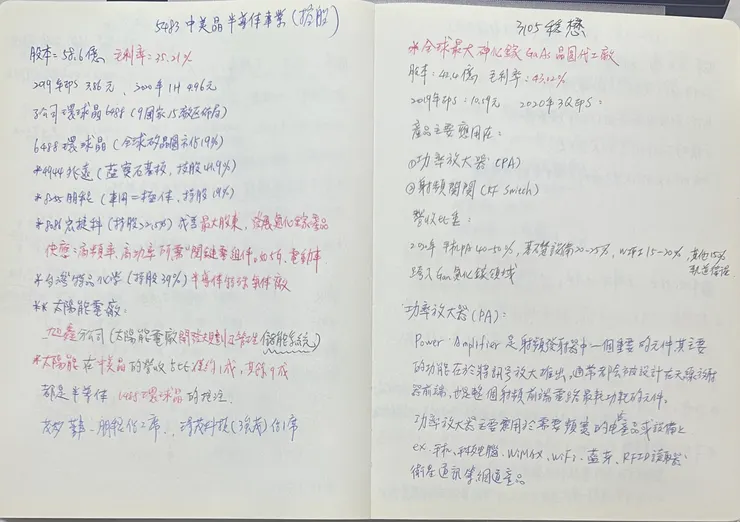 5483 中美晶 半導体事業 (控股)
股本=58.6億 毛利率=35.21%
2019年EPS 3.86元、2020年1H 4.96元
子公司環球晶6488 (9國家15廠區佈局)
6488環球晶 (全球矽晶圓市佔19%)
*4944兆遠 (藍寶石基板,持股41.9%)
*8255朋程 (車用=極体,持股19%)
*8086宏捷科 (持股22.15%) 成為最大股東,發展氮化鎵產品
優應:高頻率,高功率所需"關鍵零組件,如5G,電動車
*台灣特品化學 (持股39%) 半導体特殊氣体廠
** 太陽能電廠:
旭鑫分公司 (太陽能電廠開發規劃及管理 儲能系統)
*太陽能在中美晶的營收占比僅約1成,其餘9成
都是半導体 環球晶的挹注
茂矽董事-朋程佔2席
3105 穩懋
*全球最大砷化鎵GaAs晶圓代工廠
股本:42.4億 毛利率:43.12%
2019年EPS:10.59元 2020年3Q EPS:
產品主要應用在:
①功率放大器 (PA)
②射頻開關 (RF Switch)
營收比重:
2020年手機PA 40-50%,基礎設備20-25%,WiFi 15-20%,其他15%
跨入GaN氮化鎵領域
功率放大器 (PA):
Power Amplifier是射頻發射器中一個重要的元件其主要
的功能在於將訊號放大推出,通常都會被設計在天線
器前端,也是整個射頻前端電路最耗功耗的元件。
功率放大器主要應用於需要頻寬的產品或設備上
ex.手机,平板電腦、WiMAX、WiFi、藍芽、RFID讀取器、
衛星通訊等網通產品